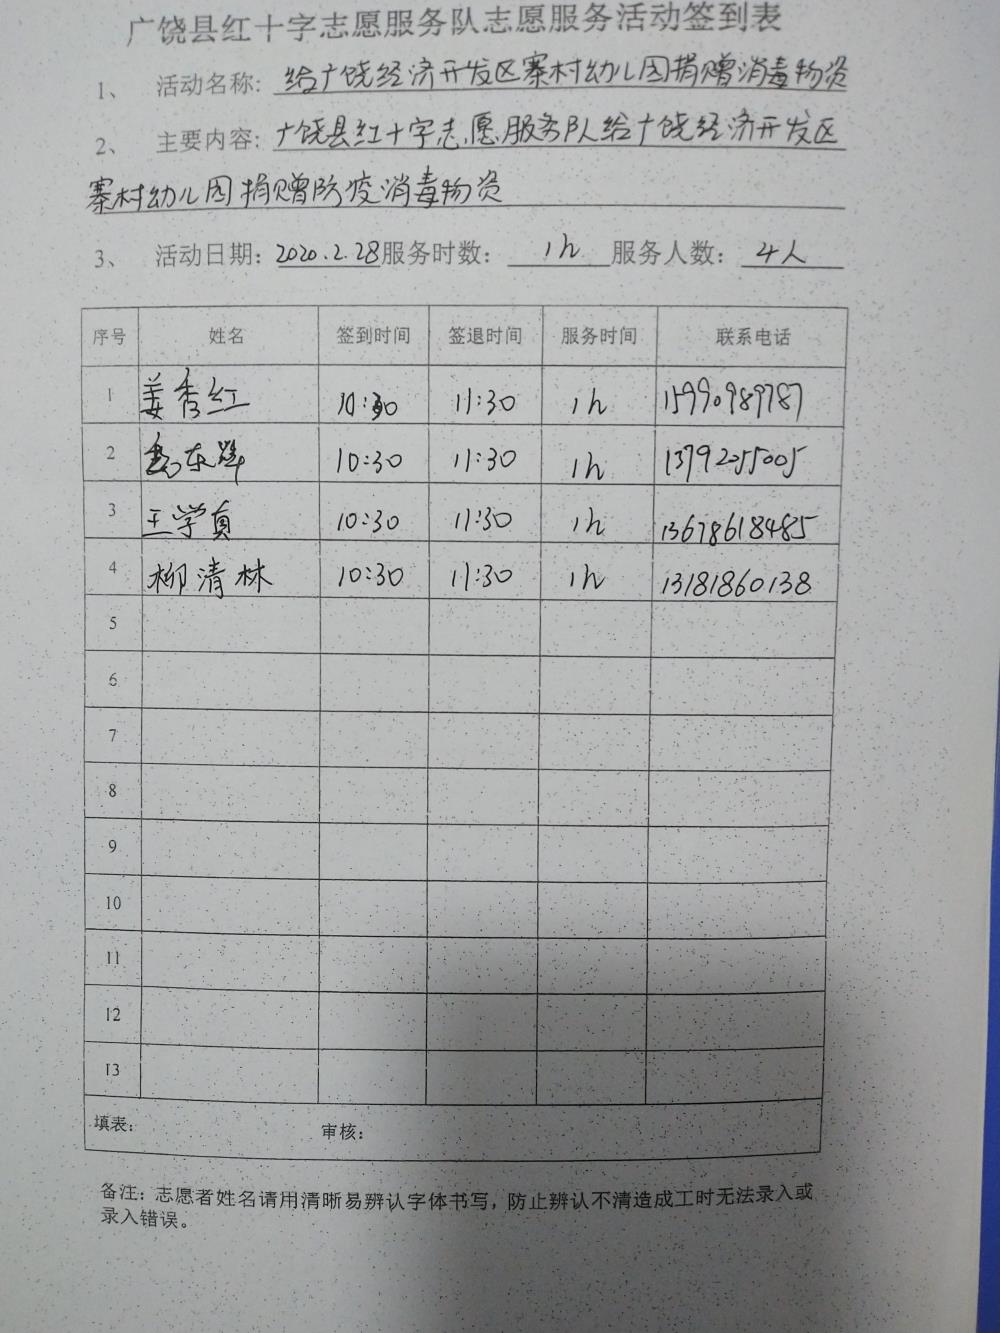 广饶县红十字志愿服务队志愿服务活动签到表
1、 活动名称: 给广饶经济开发区寨村幼儿园捐赠消毒物资
2、 主要内容: 广饶县红十字志愿服务队给广饶经济开发区
寨村幼儿园捐赠防疫消毒物资
3、 活动日期: 2020.2.28 服务时数: 1h 服务人数: 4人
序号 姓名 签到时间 签退时间 服务时间 联系电话
1 姜秀红 10:30 11:30 1h 15990989787
2 10:30 11:30 1h 13792055005
3 王学真 10:30 11:30 1h 13678618485
4 柳清林 10:30 11:30 1h 13181860138
5
6
7
8
9
10
11
12
13
填表: 审核:
备注:志愿者姓名请用清晰易辨认字体书写,防止辨认不清造成工时无法录入或
录入错误。